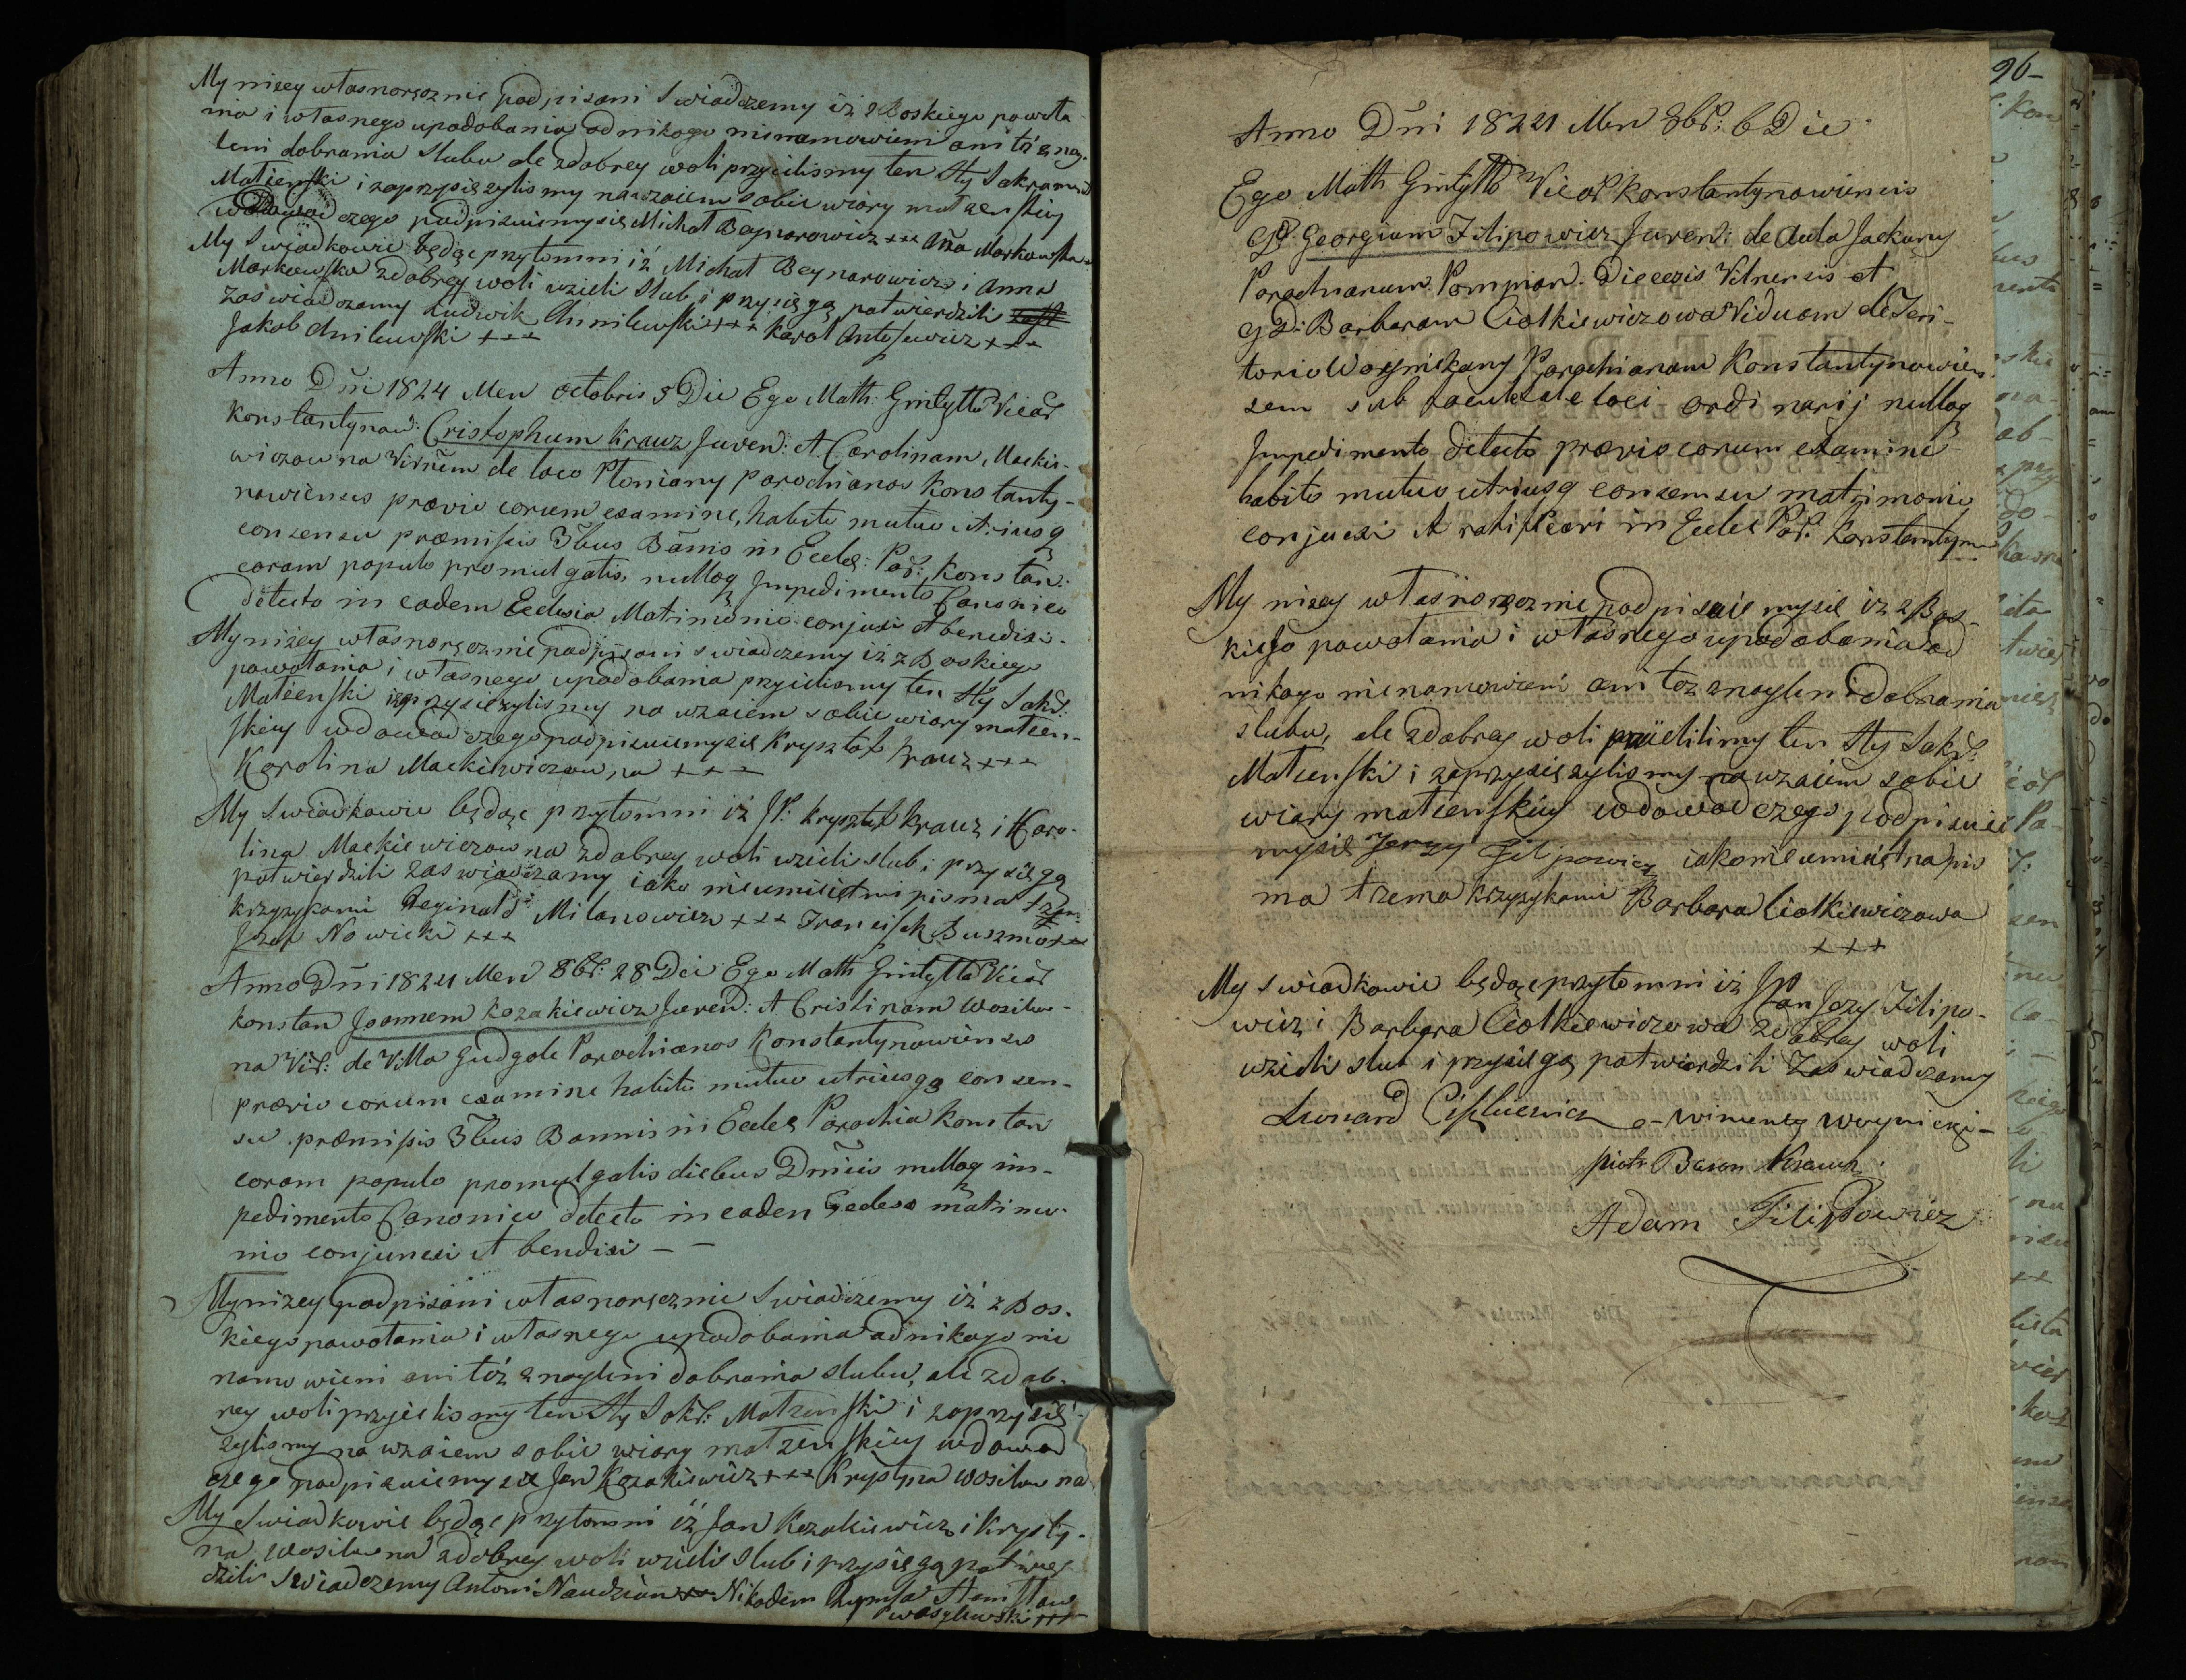 My niżey własnoręcznie podpisani swiadczemy iż z Boskiego powoła
nia i własnego upodobania od nikogo nienamowieni ani też nag-
leni dobrania slubu ale zdobrey woli przyielismy ten Sty Sakrament
Małżenski i zaprzysięzylismy nawzaiem sobie wiary małzenskiey
wdowod czego podpisuiemysię Michał Beynarowicz +++ Aña Markowska
My Swiadkowie będąc przytomni iż Michał Beynarowicz i Anna
Markowska zdobrey woli wzieli slub i przysięgą potwierdzili
zaswiadczamy Ludwik Chmilewski +++ Karol Antosewicz +++
Jakob Chmilewski +++
Anno Dñi 1824 Men octobris 5 Die Ego Math: Gintyłło Vicar
Konstantynow: Cristophum Krauz Juven: et Carolinam Mackie-
wiczowna Virñem de loco Płoniany Parochianos Konstanty-
nowienses prævio eorum examine, habito mutuo utriusq
consensu præmissis 3bus Bañis in Eccles: Par: Konstan:
coram populo promulgatis, nulloq Impedimento Canonico
detecto in eadem Ecclesia Matimonio conjuxi et benedixi-
My niżey własnoręcznie podpisani swiadczemy iż z Boskiego
powołania i własnego upodobania przyielismy ten Sty Sakr:
Małżenski i zaprzysięzylismy na wzaiem sobie wiary małżen-
skiey wdowod czego podpisuiemysię Krysztof Krauz +++
Karolina Mackiewiczowna +++
My Swiadkowie będąc przytomni iż JP: Krysztof Krauz i Karo-
lina Mackiewiczowna zdobrey woli wzieli slub i przysięgą
potwierdzili zaswiadczamy iako nieumieiętni pisma trzm:
krzyzykami Reginald Milanowicz +++ Francisek Buszmo +++
Jozef Nowicki +++
Anno Dñi 1824 Men 8br: 28 Dei Ego Math Gintyłło Vicar
Konstan Joannem Kozakiewicz Juven: et Cristinam Wosiluw-
na Vir: de Villa Gudgole Parochianos Konstantynowienses
prævio eorum examine habito mutuo utriusqq consen-
su præmissis 3bus Bannis in Eccles Parochia Konstan
coram populo promulgatis diebus Dñicis nulloq im-
pedimento Canonico detecto in eaden Eccless mati mo-
nio conjunxi et bendixi - -
My niżey podpisani własnoręcznie swiadczemy iż z Bos-
kiego powołania i własnego upodobania od nikogo nie
namowieni ani też znagleni dobrania slubu, ale zdob-
rey woli przyielismy ten Sty Sakr: Małzenski i zaprzysię-
zylismy na wzaiem sobie wiary małzenskiey wdowod
czego podpisuiemy się Jan Kozakiewicz +++ Krystyna Wosiluwna
My Swiadkowie będąc przytomni iż Jan Kozakiewicz i Krysty-
na Wosiluwna zdobrey woli wzieli slub i przysięgą potwier-
dzili swiadczemy Antoni Naudziun +++ Nikodem Rymsa Stanisław
Wasylewski +++
96-
Anno Dñi 1824 Men 8br: 6 Die
Ego Math Gintyłło Vicar Konstantynowiensis
GD. Georgium Filipowicz Juven: de Aula Jackany
Parochianum Pompian: Diecezis Vilnensis et
GD: Barbaram Ciołkiewiczowa Viduam de Teri-
torio Woyniszany Parochianam Konstantynowien-
sem sub facultate loci ordinarij nulloq
Impedimento detecto prævio eorum examine
habito mutuo utriusq consensu matrimonio
conjuxi et ratificavi in Eccles Par: Konstantynow
My nizey własnoręcznie podpisuiemysię iz z Bos-
kiego powołania i własnego upodobania od
nikogo nienamowieni ani toz znagleni dobrania
slubu, ale zdobrey woli przyielilimy ten Sty Sakr:
Małzenski i zaprzysięzylismy na wzaiem sobie
wiary małżenskiey wdowod czego podpisuie
mysię Jerzy Filipowicz iako nieumieiętna pis
ma trzema krzyzykami Barbara Ciołkiewiczowa
+++
My swiadkowie będąc przytomni iż JPan Jezy Filipo-
wicz i Barbara Ciołkiewiczowa zdobrey woli
wzieli slub i przysięgą potwierdzili Zaswiadczamy
Leonard Wincenty Woynicki -
Piotr Baron Krauz
Adam Filipowicz